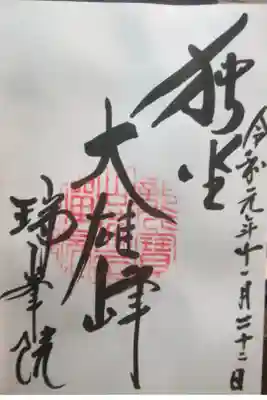 令和元年十一月二十二日
独坐
大雄峰
瑞峯院